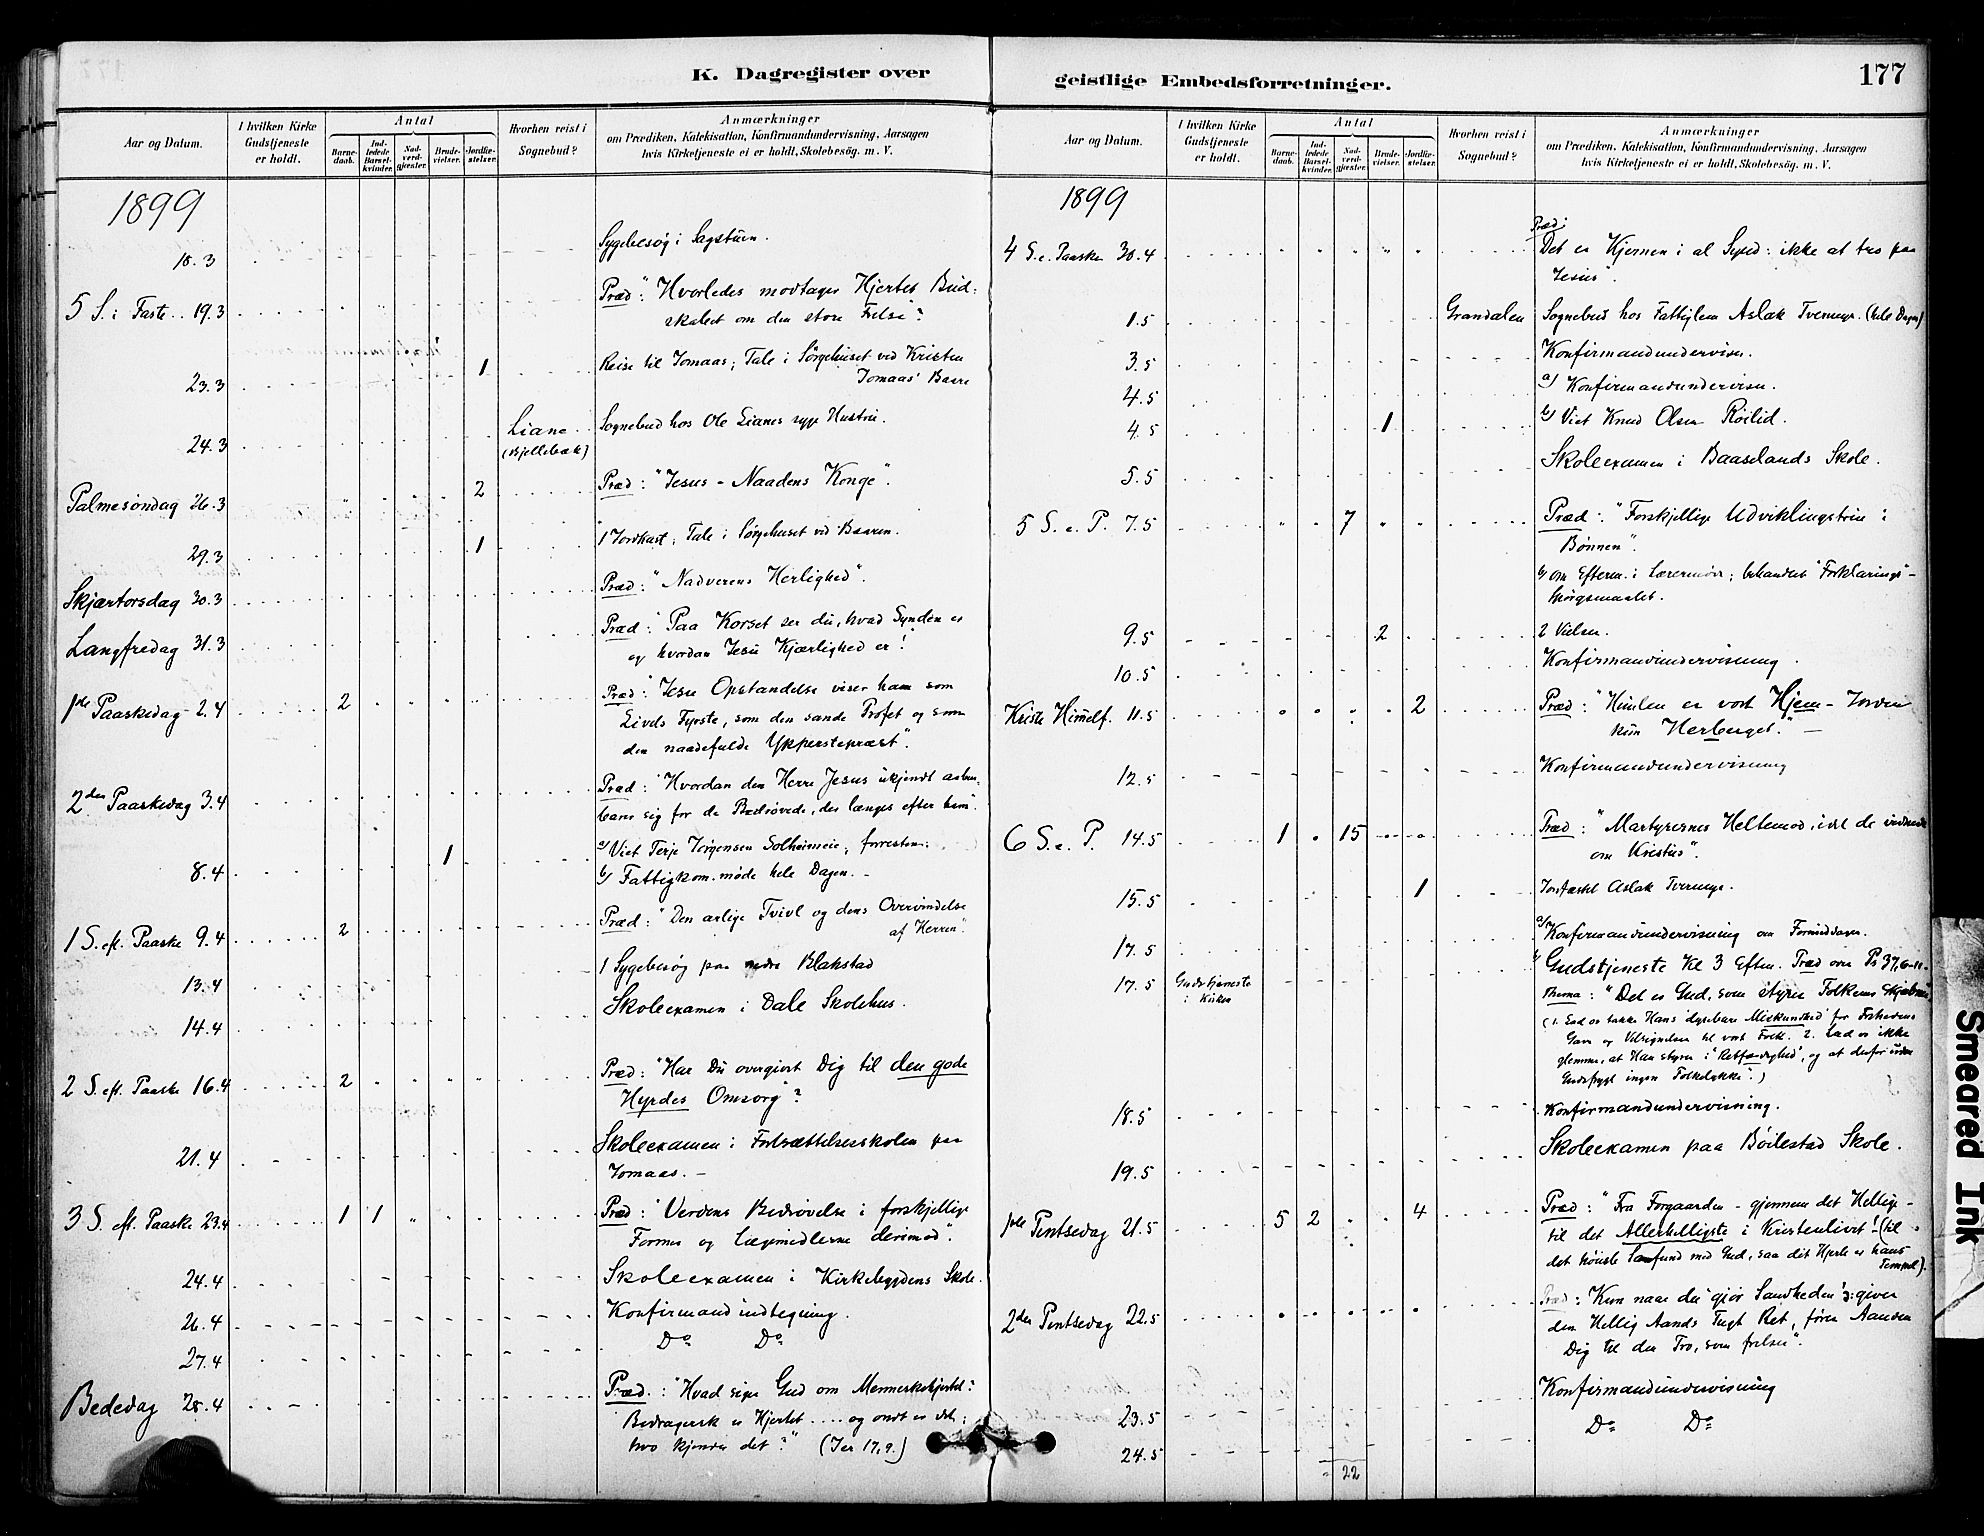 K. Dagregister over
geistlige Embedsforretninger.
177
Aar og Datum.
I hvilken Kirke Gudstjeneste er holdt.
Antal
Barnedaab.
Indledede Barselkvinder.
Nadverdgjester.
Brudevielser.
Jordfæstelser.
Hvorhen reist i Sognebud?
Anmærkninger
om Prædiken, Katekisation, Konfirmandundervisning, Aarsagen
hvis Kirketjeneste ei er holdt, Skolebesøg. m. V.
1899
18.3 Sygebesøg i Sagstuen.
5 S. i Faste 19.3 Præd: "Hvorledes modtager Hjertet Bud-
skabet om den store Frelse?
23.3 1 Reise til Tomaas; Tale i Sørgehuset ved Kristen
Tomaas' Baare
24.3 Liane Sognebud hos Ole Lianes syge Hustru.
(Bjellebæk)
Palmesøndag 26.3 2 Præd: "Jesus - Naadens Konge".
29.3 1 1 Jordkast; Tale i Sørgehuset ved Baaren.
Skjærtorsdag 30.3 Præd: "Nadverens Herlighed".
Langfredag 31.3 Præd: "Paa Korset ser du, hvad Synden er
og hvordan Jesu Kjærlighed er!
1ste Paaskedag 2.4 2 Præd: "Jesu Opstandelse viser ham som
Livets Fyrste, som den sande Profet og som
den naadefulde Ypperstepræst".
2den Paaskedag 3.4 Præd: "Hvordan den Herre Jesus ukjendt aaben-
barer sig for de Bedrøvede, der længes efter ham".
8.4 1 a) Viet Terje Jørgensen Solheimeie; forresten:
b) Fattigkom. møde hele Dagen. -
1 S. eft. Paaske 9.4 2 Præd: "Den ærlige Tvivl og dens Overvindelse
af Herren".
13.4 1 Sygebesøg paa nedre Blakstad
14.4 Skoleexamen i Dale Skolehus.
2 S. eft. Paaske 16.4 2 Præd: "Har Du overgivet Dig til den gode
Hyrdes Omsorg"?
21.4 Skoleexamen i Fortsættelsesskolen paa
Tomaas. -
3 S. eft. Paaske 23.4 1 1 Præd: "Verdens Bedrøvelse i forskjellige
Former og Lægemidlerne derimod".
24.4 Skoleexamen i Kirkebygdens Skole.
26.4 Konfirmandindtegning.
27.4 Do Do
Bededag 28.4 Præd.: "Hvad siger Gud om Menneskehjertet:
Bedragersk er Hjertet .... og ondt er det;
hvo kjender det?" (Jer 17,9.)
Aar og Datum.
I hvilken Kirke Gudstjeneste er holdt.
Antal
Barnedaab.
Indledede Barselkvinder.
Nadverdgjester.
Brudevielser.
Jordfæstelser.
Hvorhen reist i Sognebud?
Anmærkninger
om Prædiken, Katekisation, Konfirmandundervisning, Aarsagen
hvis Kirketjeneste ei er holdt, Skolebesøg. m. V.
1899
Præd:
4 S. e. Paaske 30.4 Det er Kjernen i al Synd: ikke at tro paa
Jesus".
1.5 Grandalen Sognebud hos Fattiglem Aslak (hele Dagen)
3.5 Konfirmandundervisn.
4.5 a) Konfirmandundervisn.
4.5 1 b) Viet Knud Olsen Røilid.
5.5 Skoleexamen i Baaselands Skole.
5 S. e. P. 7.5 7 Præd: "Forskjellige Udviklingstrin i
Bønnen".
b) om Efterm. i Læremøde; behandlet "Forklarings"-
Spørgsmaalet.
9.5 2 2 Vielser.
10.5 Konfirmandundervisning.
Kristi Himmelf. 11.5 2 Præd: "Himlen er vort Hjem - Jorden
kun Herberget." -
12.5 Konfirmandundervisning
6 S. e. P. 14.5 1 15 Præd: "Martyrernes Heltemod, idet de vidnede
om Kristus".
15.5 1 Jordfæstet Aslak
17.5 a) Konfirmandundervisning om Formiddagen.
17.5 Gudstjeneste b) Gudstjeneste Kl 3 Efterm. Præd over Ps 37,
i Kirken Thema: "Det er Gud, som styrer Folkenes Skjæbne"
(1. Lad os takke Hans dyrebare Miskundhed for Frihedens
Gave og Velsignelse til vort Folk. 2. Lad os ikke
glemme, at Han styrer i "Retfærdighed", og at derfor uden
Gudsfrygt ingen Folkelykke".)
18.5 Konfirmandundervisning.
19.5 Skoleexamen paa Bøilestad Skole.
1ste Pintsedag 21.5 5 2 4 Præd: "Fra Forgaarden - gjennem det Hellige -
til det Allerhelligste i Kristenlivet! (til
det høieste Samfund med Gud, saa dit Hjerte er hans
Tempel).
2den Pintsedag 22.5 Præd: "Kun naar du "gjør Sandheden" ɔ: giver
den Hellig Aands Tugt Ret, fører Aanden
Dig til den Tro, som frelser".
23.5 Konfirmandundervisning
24.5 Do Do
22
Smeared Ink